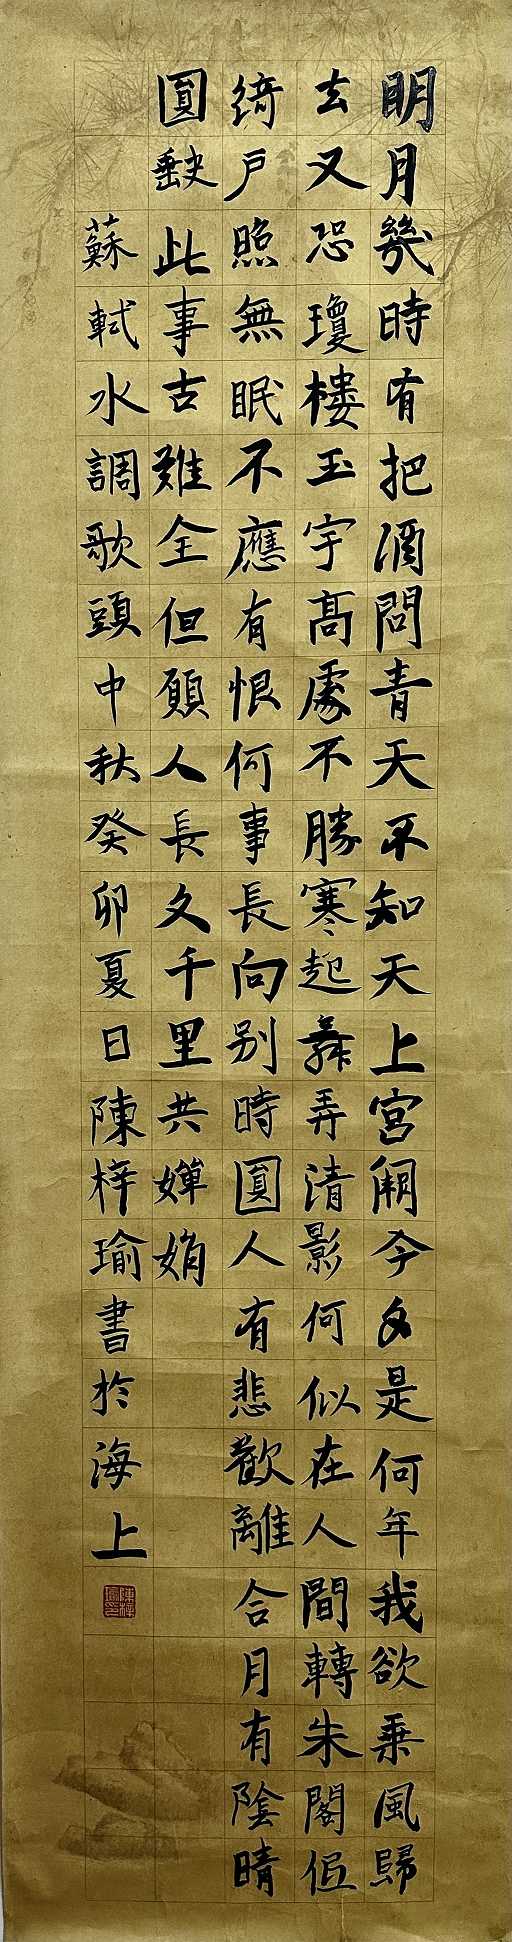 明月幾時有把酒問青天不知天上宮闕今夕是何年我欲乘風歸
去又恐瓊樓玉宇高處不勝寒起舞弄清影何似在人間轉朱閣低
綺戶照無眠不應有恨何事長向別時圓人有悲歡離合月有陰晴
圓缺此事古難全但願人長久千里共嬋娟
蘇軾水調歌頭中秋癸卯夏日陳梓瑜書於海上
陳梓瑜印